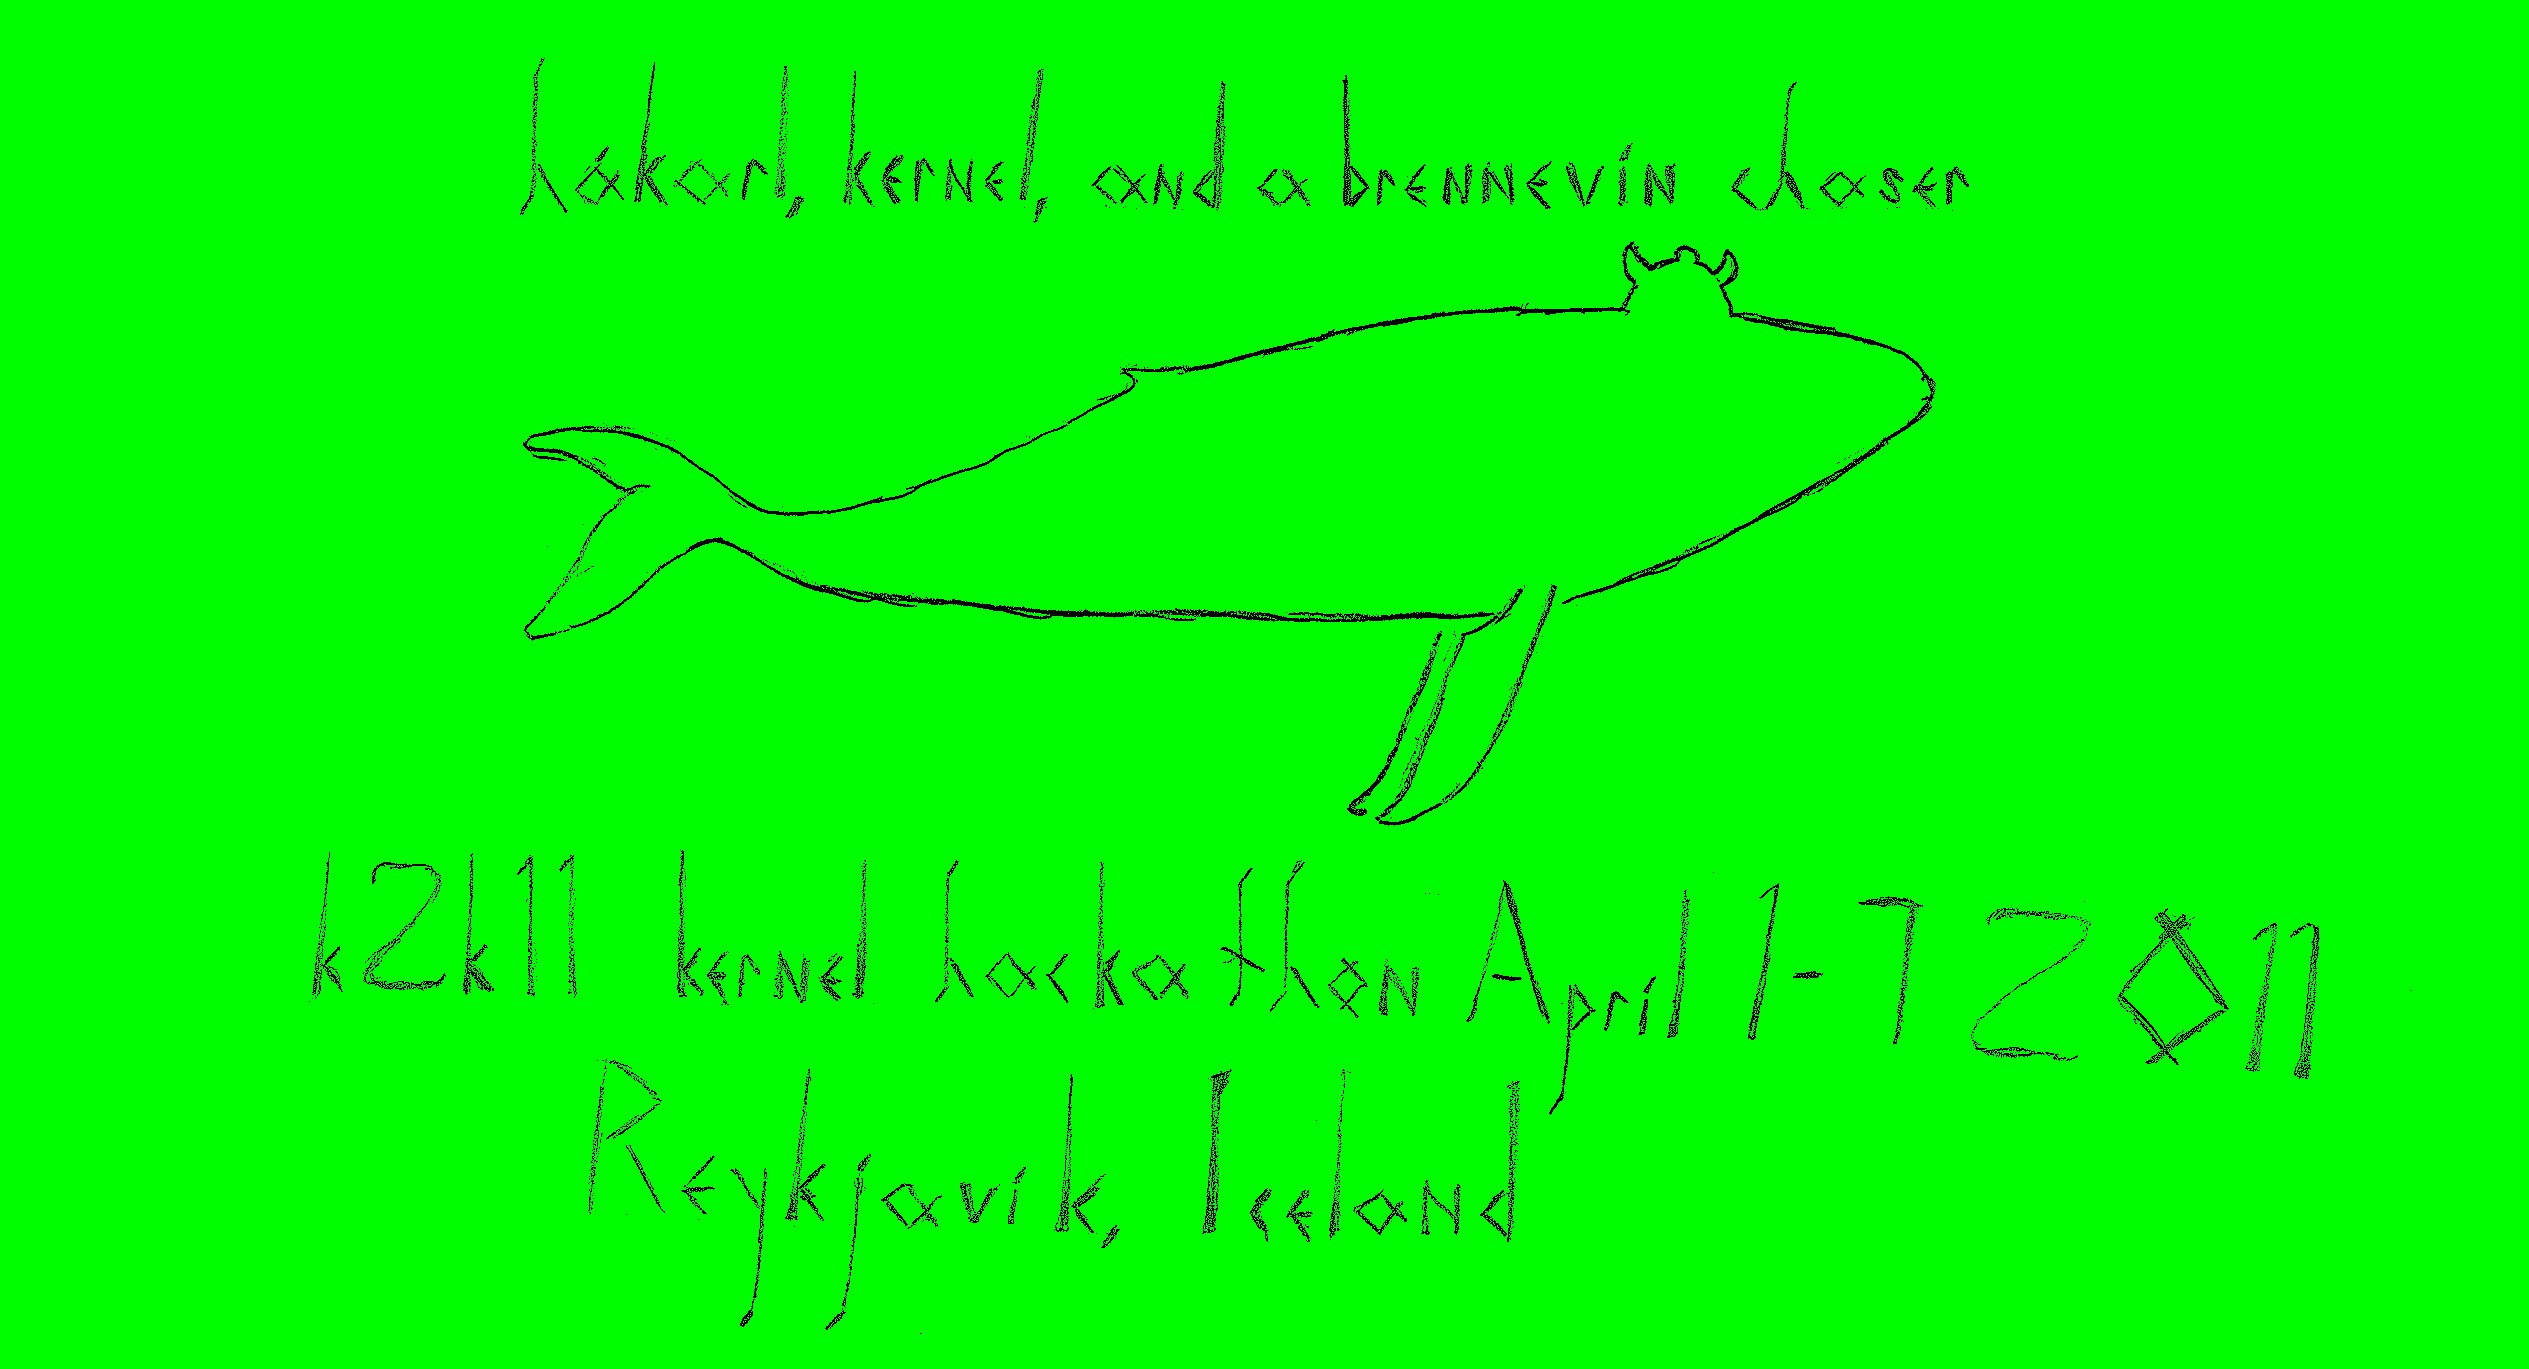 hákarl, kernel, and a brennevin chaser
k2k11 kernel hackathon April 1-7 2011
Reykjavik, Iceland